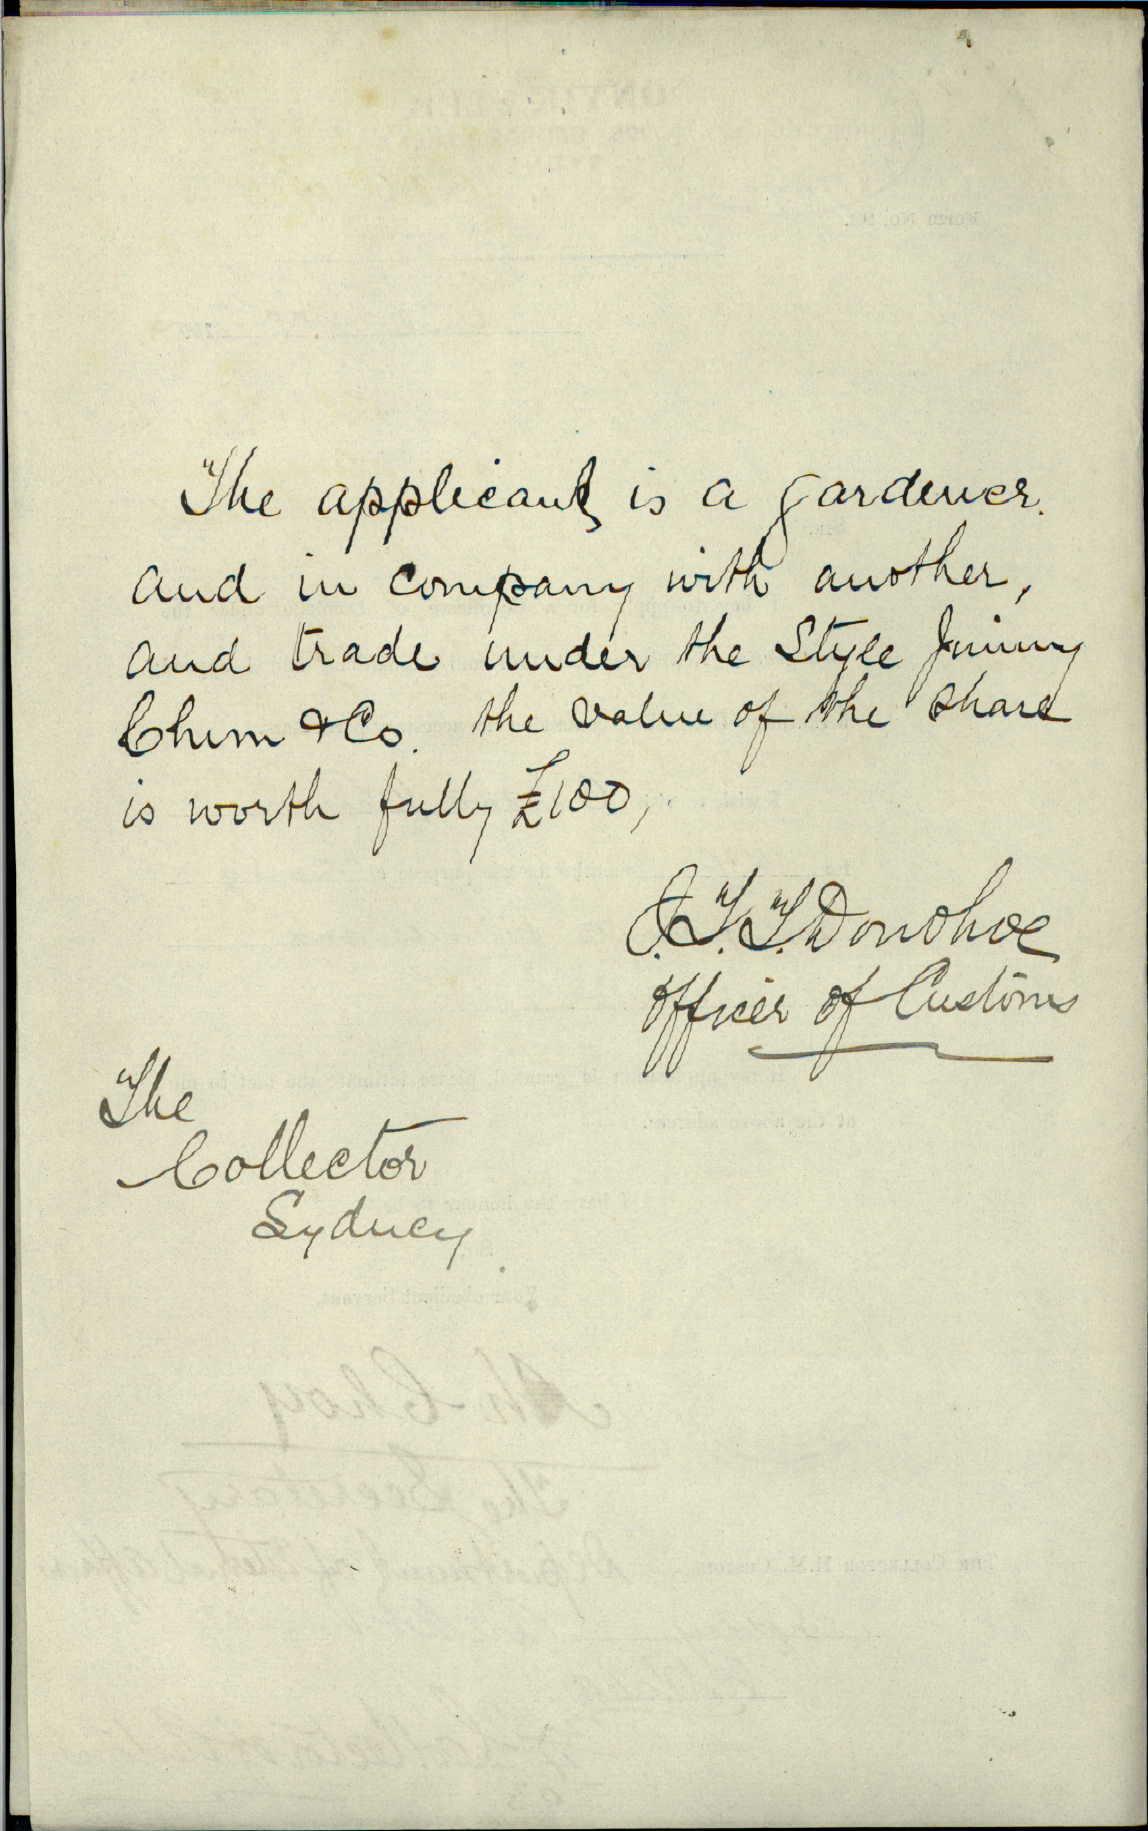 The applicant is a gardener.
and in company with another,
and trade under the Style Jimmy
Chum & Co. the value of the share
is worth fully £100,
J.T.T. Donohoe
Officer of Customs
The
Collector
Sydney